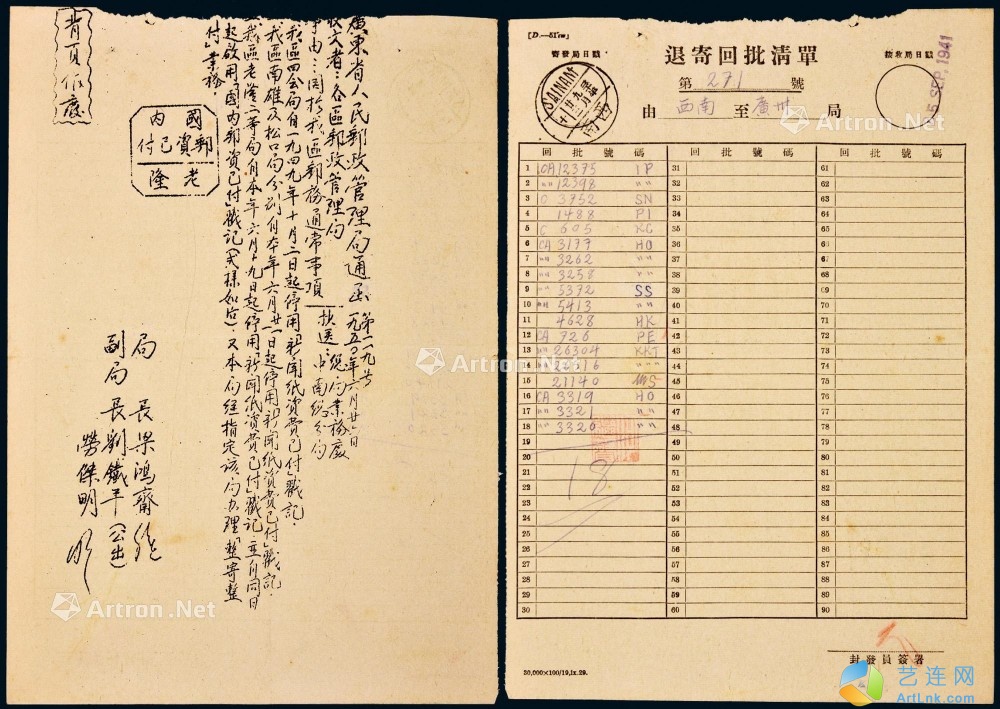 廣東省人民郵政管理局通函 第一一九号
一九五〇年六月廿六日
收文者：各區郵政管理局
抄送：總局業務處
中南總分局
事由：関於我區郵務通常事項
我區四会局自一九四九年十月二日起停用「新聞紙資費已付」戳記．
我區南雄及松口局分别自本年六月廿一日起停用「新聞紙資費已付」戳記．
我區老隆二等局自本年六月十九日起停用「新聞紙資費已付」戳記，並自同日
起啟用「國内郵資已付」戳記（式樣如后）．又本局經指定该局办理「整寄整
付」業務．
國内
郵資已付
老隆
局長梁鴻齋
副局長劉鐵平（公出）
勞傑明
背頁作廢
[D.—51
寄發局日戳
退寄回批清單
接收局日戳
第 271 號
由 西南 至 廣州 局
SAINAM
西南
5 SEP. 1941
回批號碼 回批號碼 回批號碼
1 CA 12375 IP 31 61
2 "" 12398 "" 32 62
3 O 3752 SN 33 63
4 1488 PI 34 64
5 C 605 KC 35 65
6 CA 3177 HO 36 66
7 "" 3262 "" 37 67
8 "" 3258 "" 38 68
9 "" 5372 SS 39 69
10 "" 5413 "" 40 70
11 4628 HK 41 71
12 CA 726 PE 42 72
13 "" 26304 KKT 43 73
14 "" "" 44 74
15 21140 45 75
16 CA 3319 HO 46 76
17 "" 3321 "" 47 77
18 "" 3320 "" 48 78
19 49 79
20 50 80
21 51 81
22 52 82
23 53 83
24 54 84
25 55 85
26 56 86
27 57 87
28 58 88
29 59 89
30 60 90
18
封發員簽署
30,000×100/19.ix.29.
Artron.Net
Artron.Net
Artron.Net
Artron.Net
艺连网
ArtLnk.com